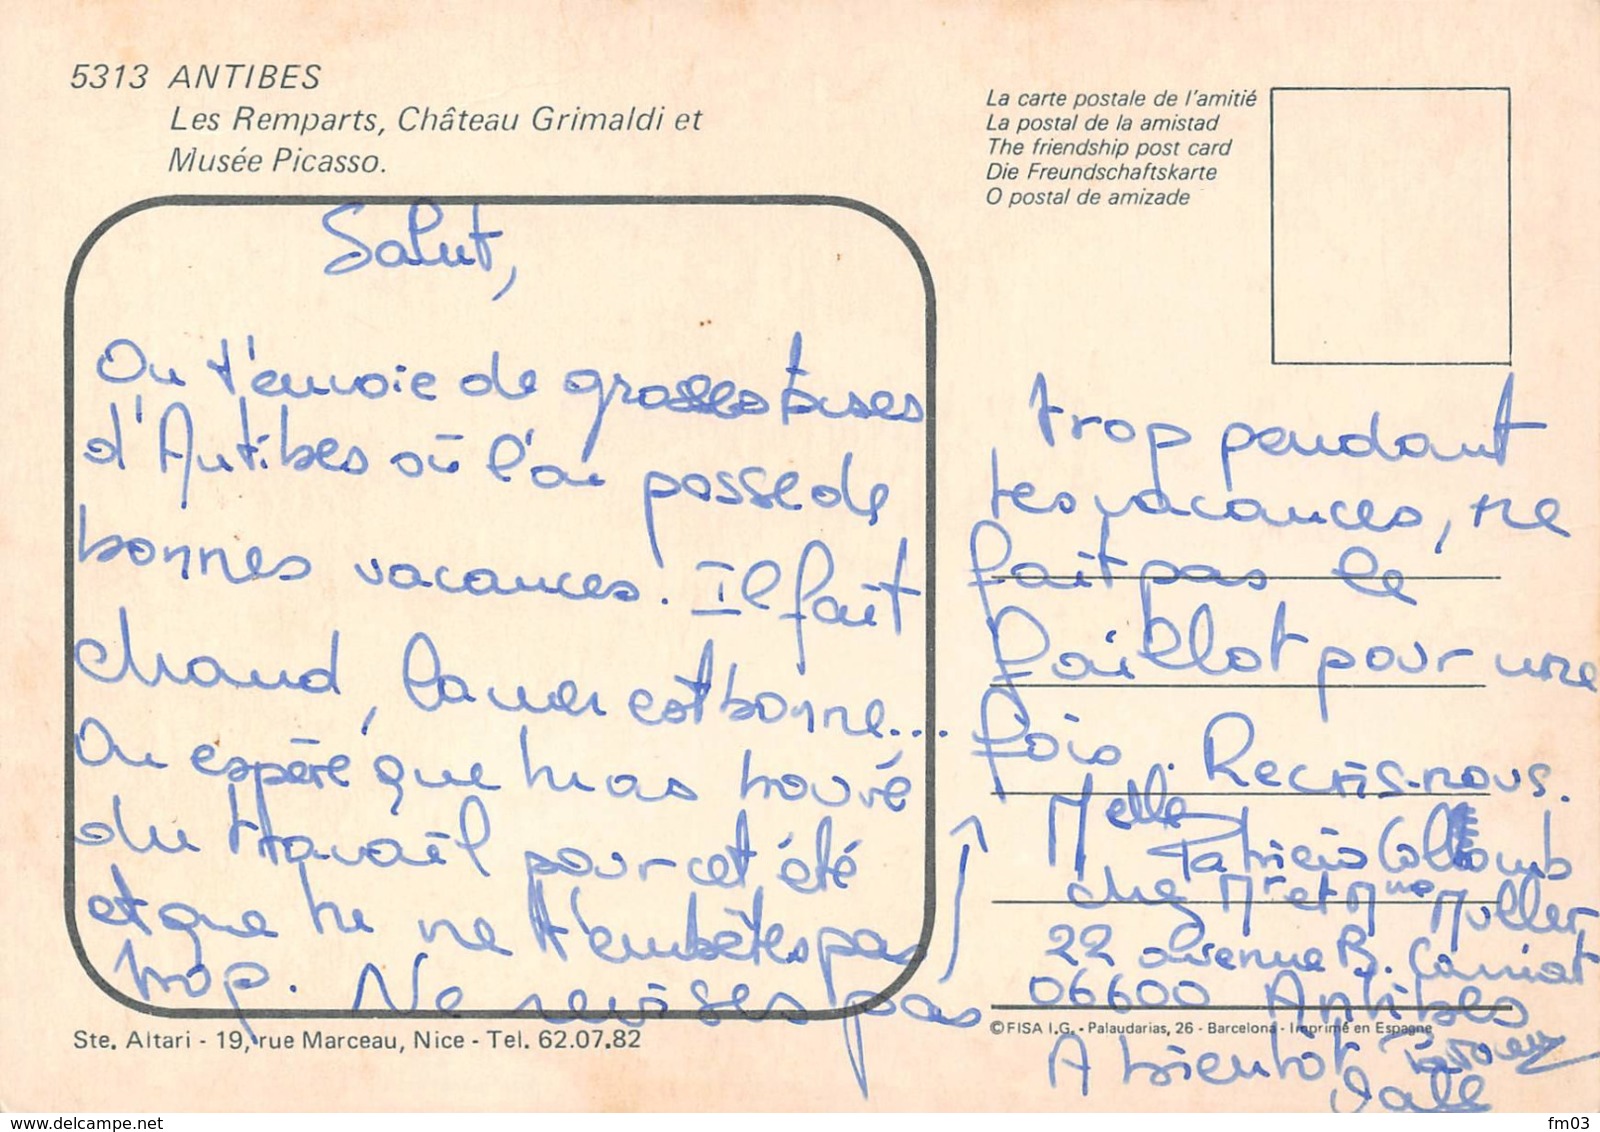 5313 ANTIBES
Les Remparts, Château Grimaldi et
Musée Picasso.
La carte postale de l'amitié
La postal de la amistad
The friendship post card
Die Freundschaftskarte
O postal de amizade
Salut,
On t'envoie de grosses bises
d'Antibes où l'on passe de
bonnes vacances. Il fait
chaud, la mer est bonne...
On espère que tu as trouvé
du travail pour cet été
et que tu ne t'embêtes pas
trop. Ne révises pas
trop pendant
tes vacances, ne
fait pas le
faillot pour une
fois. Recris-nous.
Melle Patricia Collomb
chez Mr et Mme Muller
22 avenue B.
06600 Antibes
A bientot
Ste. Altari - 19, rue Marceau, Nice - Tel. 62.07.82
©FISA I.G. - Palaudarias, 26 - Barcelona - Imprimé en Espagne
www.delcampe.net
fm03